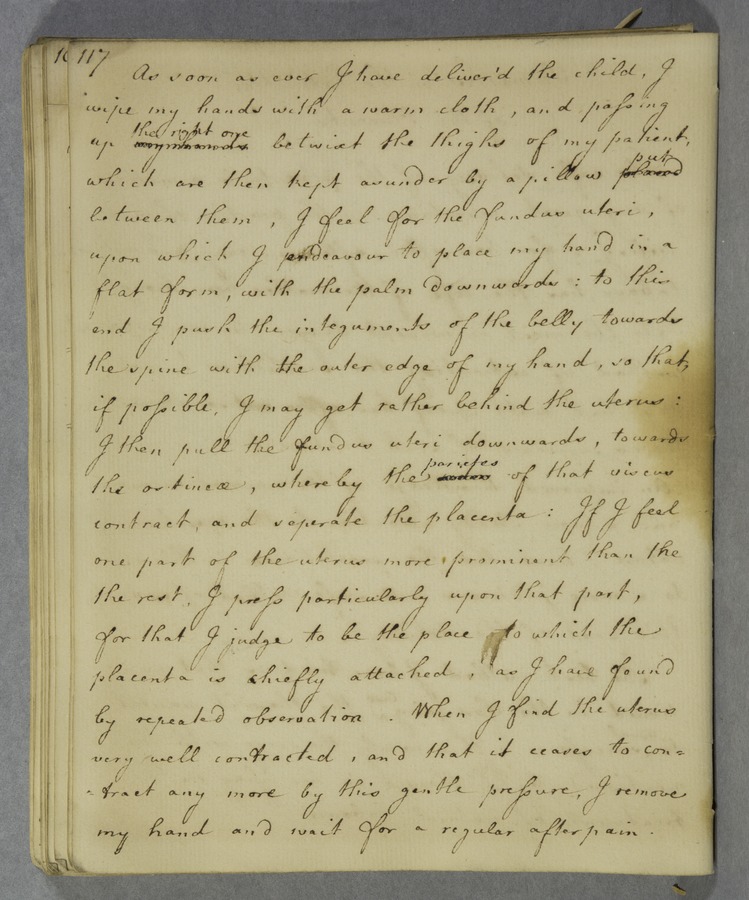 117
As soon as ever I have deliver'd the child, I
wipe my hands with a warm cloth, and passing
up the right one betwixt the thighs of my patient,
which are then kept asunder by a pillow put
between them, I feel for the fundus uteri,
upon which I endeavour to place my hand in a
flat form, with the palm downwards: to this
end I push the integuments of the belly towards
the spine with the outer edge of my hand, so that,
if possible, I may get rather behind the uterus:
I then pull the fundus uteri downwards, towards
the os tincæ, whereby the parietes of that viscus
contract, and seperate the placenta: If I feel
one part of the uterus more prominent than the
the rest, I press particularly upon that part,
for that I judge to be the place to which the
placenta is chiefly attached, as I have found
by repeated observation. When I find the uterus
very well contracted, and that it ceases to con=
=tract any more by this gentle pressure, I remove
my hand and wait for a regular afterpain.